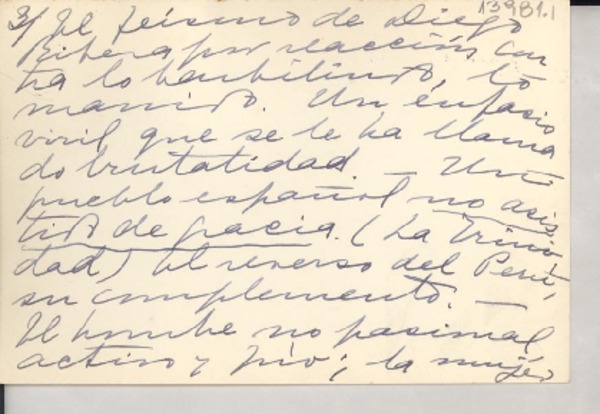 13981.1
3/ El feísmo de Diego
Ribera por reacción con
tra lo barbilindo, lo
manido. Un énfasis
viril que se le ha llama
do brutalidad. — Un
pueblo español no asis
tido de gracia. (La Trini
dad) El reverso del Perú,
su complemento. —
El hombre no pasional
activo y frío; la mujer